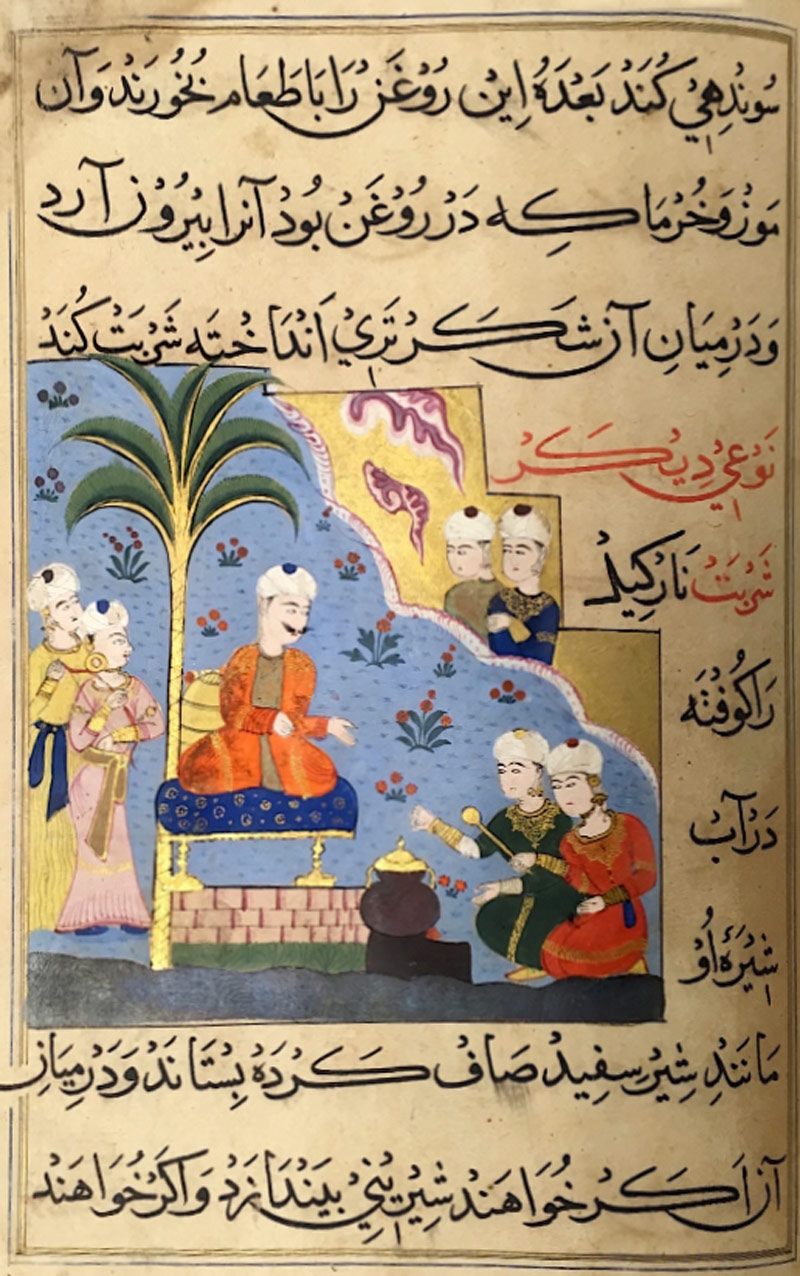 سُونْدِهِيْ کُنَدْ بَعْدَهُ اِیْن رُوْغَنْ رَا بَا طَعَام بُخُورَنْدْ وَ آن
مَوْز وَ خُرْمَا کِه دَرْ رُوْغَنْ بُودْ آنرا بِیْرُوْن آرد
وَ دَرْ مِیَانِ آن شَکَرْ تَرِيْ اَنْدَاخْتَه شَرْبَتْ کُنَدْ
نَوْعِيْ دِیْکَرْ
شَرْبَتْ نَارْکِیْلْ
رَا کُوفْتَه
دَرْ آبْ
شِیْرَهٔ اُوْ
مَانَنْدِ شِیْر سِفِیْدْ صَافْ کَرْدَهْ بِسْتَانَدْ وَ دَرْ مِیَان
آن اَکَرْ خُوَاهَنْدْ شِیْرِیْنِيْ بِیَنْدَازَدْ وَ اکَرْ خُوَاهَنْدْ